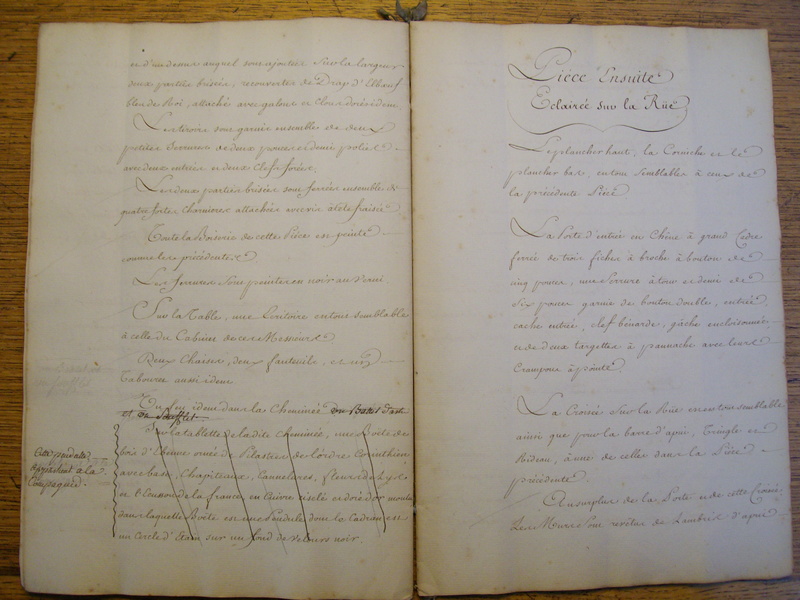 et demeure auquel sont ajoutées sur la largeur
deux parties brisées, recouvertes de Drap d'Elbeuf
bleu de Roi, attaché avec galons et clous dorés idem
Les tiroirs sont garnis ensemble de deux
petites Serrures de deux pouces et demie polies
avec deux entrées et deux clefs forées.
Les deux parties brisées sont ferrées ensemble de
quatre fortes charnieres attachées avec vis à tête fraisée
Toute la Boiserie de cette Piéce est peinte
comme les précédentes
Les ferrures sont peintes en noir au vernis.
Sur la Table, une Ecritoire en tous semblable
à celle du Cabinet de ces Messieurs
Deux Chaises, deux fauteuils, et un
Tabouret aussi idem
Un feu idem dans la Cheminée
et un Soufflet
Sur la tablette de la dite cheminée, une Boëte de
bois d'Ebenne ornée de Pilastres de l'ordre Corinthien
avec base, Chapiteaux, Cannelures, fleurs de Lys
et Ecusson de la france, en Cuivre cizelé et doré d'or moulu
dans laquelle Boëte est une Pendule dont le Cadran est
un Cercle d'Etain sur un fond de velours noir.
Cette pendule
appartient a la
Compagnie.
Piéce Ensuite
Eclairée sur la Rüe
Le plancher haut, la Corniche et le
plancher bas, en tous semblables à ceux de
la précédente Piéce
La Porte d'entrée en Chêne à grand Cadre
ferrée de trois fiches à broche à bouton de
cinq pouces, une Serrure à tour et demie de
Six pouces garnie de bouton double, entrée
cache entrée, clef bénarde, gâche encloisonnée
et de deux targettes à pannache avec leurs
Crampons à pointe
La Croisée Sur la Rüe en tous semblable
ainsi que pour la barre d'apui, Tringle et
Rideau, à une de celles dans la Piéce
précédente.
Au surplus de la Porte et de cette Croisée
Les Murs sont revêtus de Lambris d'apui